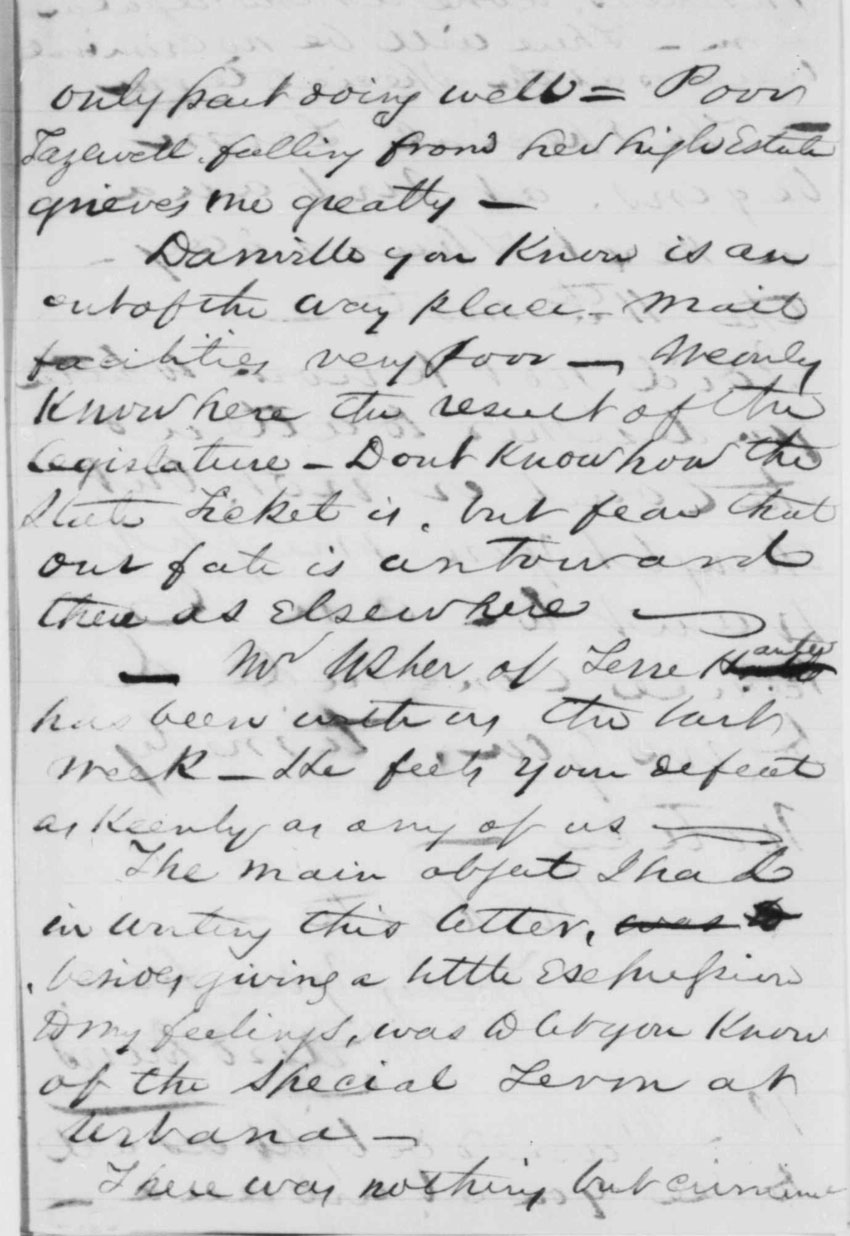 only part doing well = Poor
Tazewell. falling from her high Estate
grieves me greatly —
Danville you Know is an
out of the way place — mail
facilities very poor — We only
Know here the result of the
legislature — Dont Know how the
State ticket is, but fear that
our fate is untoward
there as Elsewhere —
— Mr Usher of Terre Haute
has been with us the last
week — He feels your defeat
as Keenly as any of us —
The main object I had
in writing this letter, was to
besides giving a little Expression
to my feelings, was to let you Know
of the Special Term at
Urbana —
There was nothing but criminal